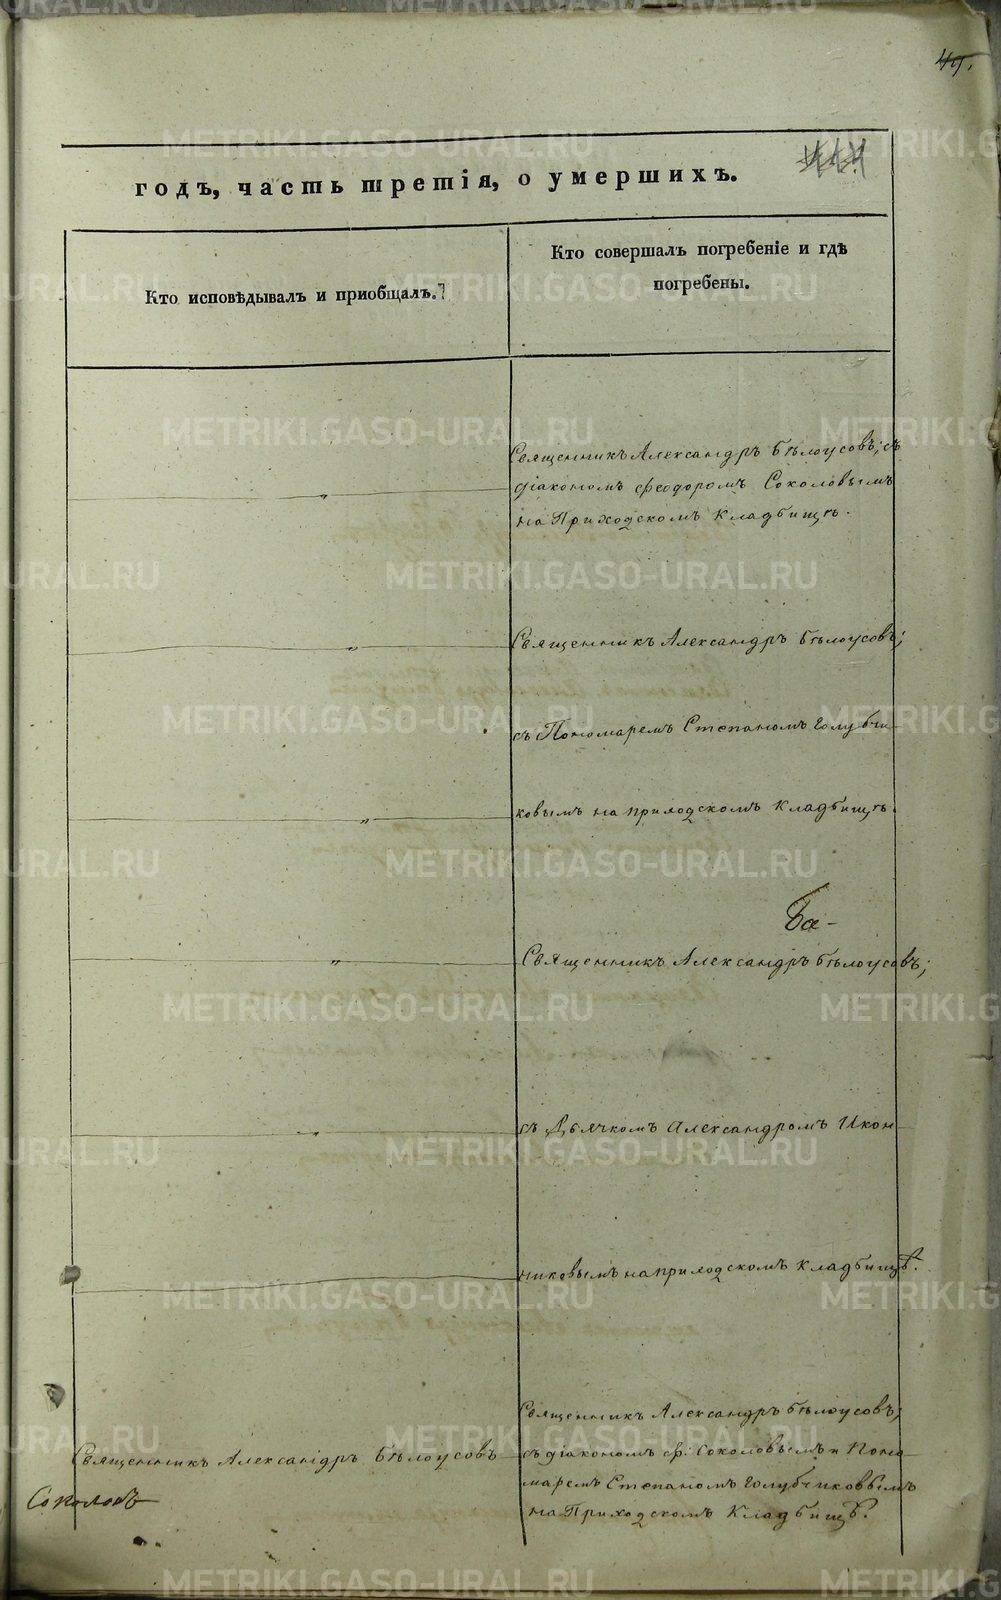 49.
годъ, часть третія, о умершихъ.
Кто исповѣдывалъ и приобщалъ.
Кто совершалъ погребеніе и гдѣ
погребены.
Священникъ Александръ Бѣлоусовъ; съ
діакономъ Феодоромъ Соколовымъ
на Приходскомъ Кладбищѣ.
Священникъ Александръ Бѣлоусовъ;
съ Пономаремъ Степаномъ Голубчи-
ковымъ на приходскомъ Кладбищѣ.
Ба-
Священникъ Александръ Бѣлоусовъ;
съ Дьячкомъ Александромъ Икон
никовымъ на приходскомъ Кладбищѣ.
Священникъ Александръ Бѣлоусовъ
Священникъ Александръ Бѣлоусовъ;
съ діакономъ Ф: Соколовымъ и Поно
маремъ Степаномъ Голубчиковымъ
на Приходскомъ Кладбищѣ.
Соколовъ
METRIKI.GASO-URAL.RU